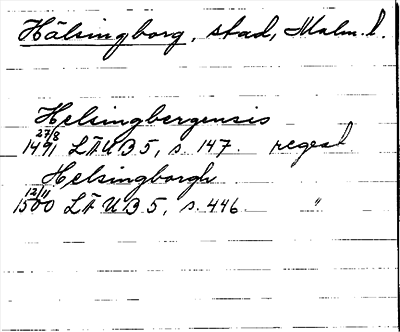 Hälsingborg, stad, Malm. l.
Helsingbergensis
27/8
1491 LÄUB 5, s. 147. regest
Helsingborgh
12/11
1500 LÄUB 5, s. 446. "